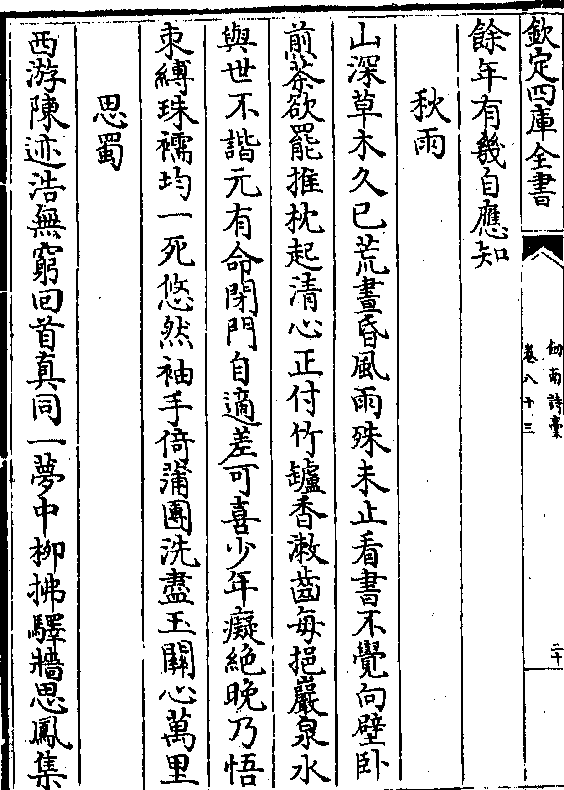 欽定四庫全書
劒南詩藁
卷八十三
二十
餘年有幾自應知
秋雨
山深草木久已荒晝昏風雨殊未止看書不覺向壁卧
煎茶欲罷推枕起清心正付竹罏香漱齒每挹巖泉水
與世不諧元有命閉門自適差可喜少年癡絶晚乃悟
束縛珠襦均一死悠然袖手倚蒲團洗盡玉關心萬里
思蜀
西游陳迹浩無窮回首真同一夢中柳拂驛牆思鳳集